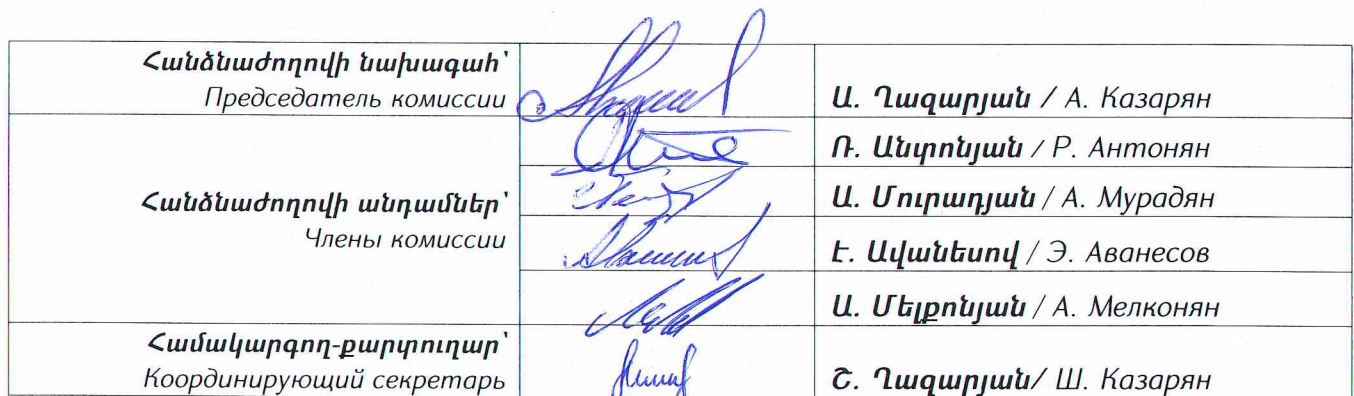 Հանձնաժողովի նախագահ՝
Председатель комиссии
Ա. Ղազարյան / А. Казарян
Հանձնաժողովի անդամներ՝
Члены комиссии
Ռ. Անտոնյան / Р. Антонян
Ա. Մուրադյան / А. Мурадян
Է. Ավանեսով / Э. Аванесов
Ա. Մելքոնյան / А. Мелконян
Համակարգող-քարտուղար՝
Координирующий секретарь
Շ. Ղազարյան/ Ш. Казарян